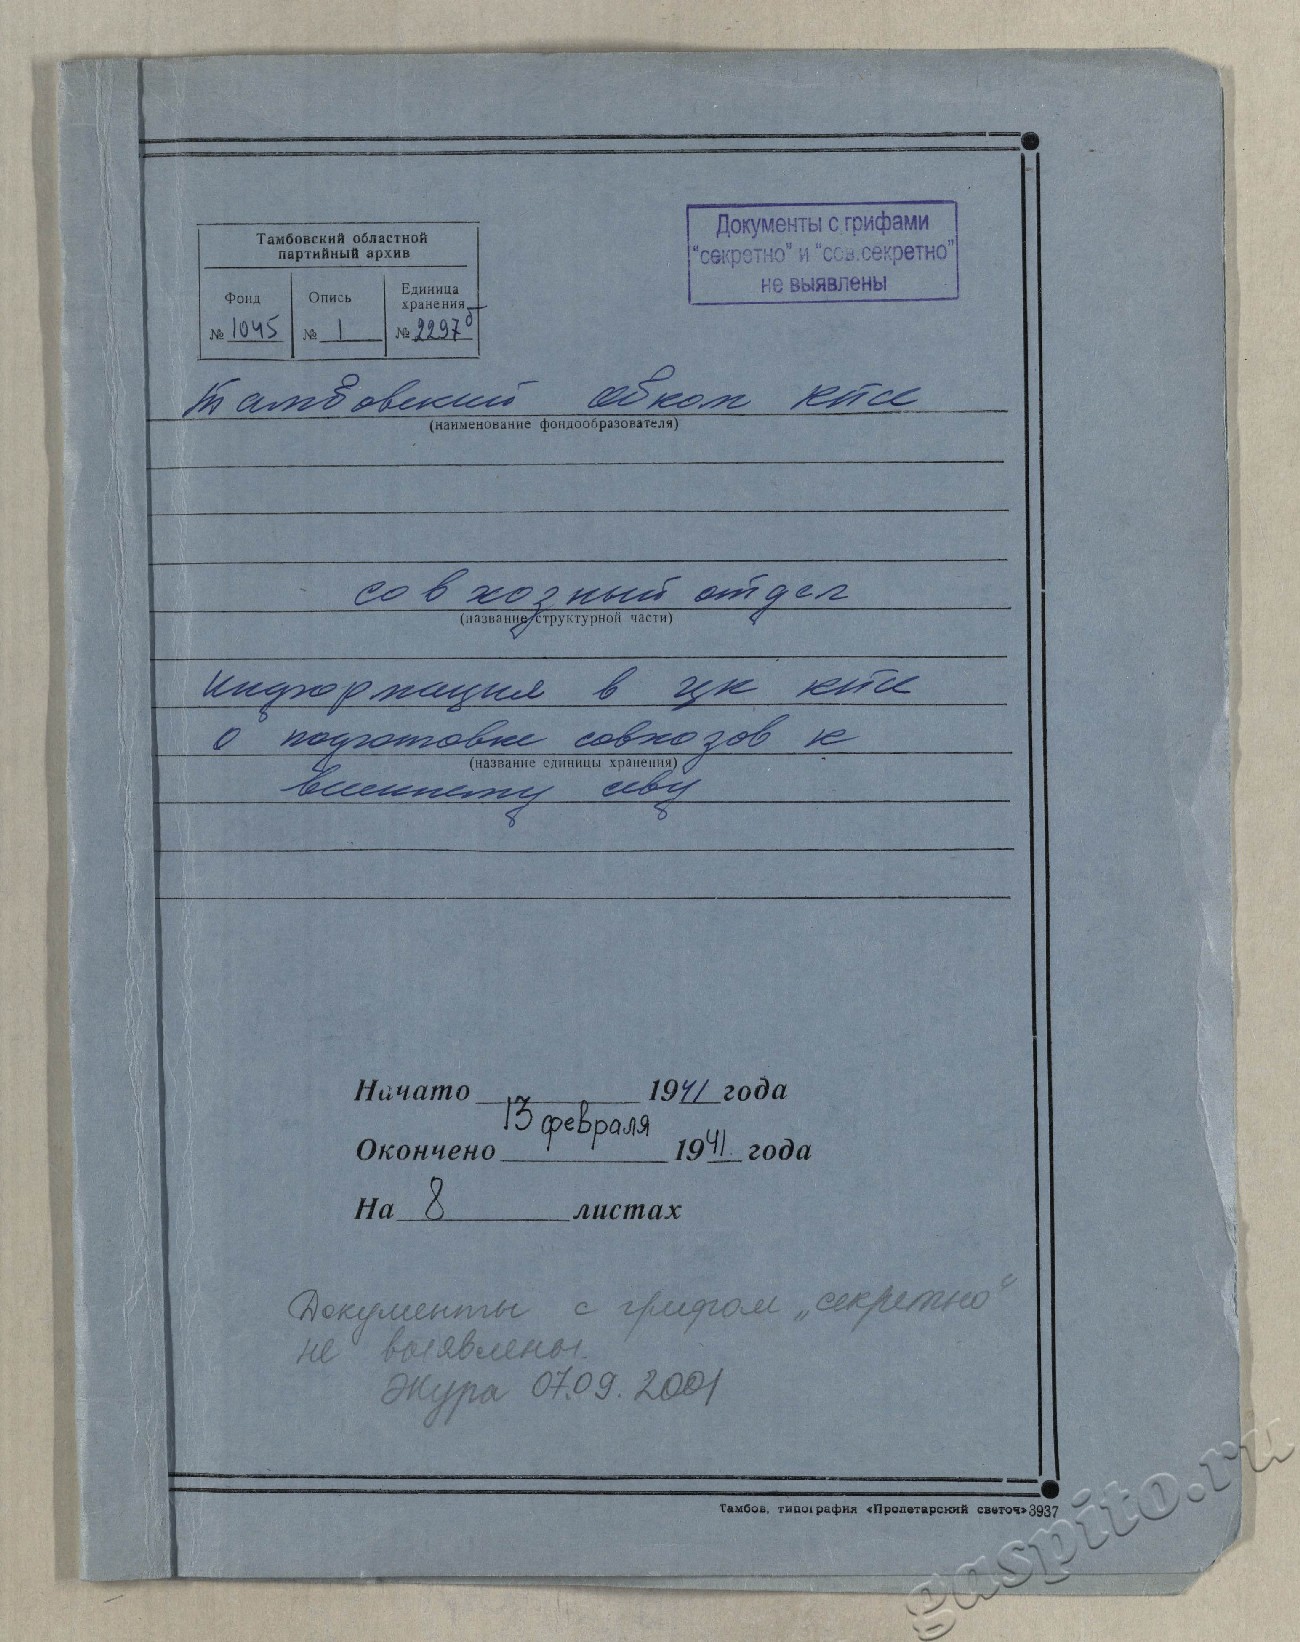 Тамбовский областной
партийный архив
Фонд
№ 1045
Опись
№ 1
Единица
хранения
№ 2297б
Документы с грифами
"секретно" и "сов.секретно"
не выявлены
Тамбовский обком КПСС
(наименование фондообразователя)
совхозный отдел
(название структурной части)
Информация в ЦК КПСС
о подготовке совхозов к
(название единицы хранения)
весеннему севу
Начато 1941 года
13 февраля
Окончено 1941. года
На 8 листах
Документы с грифом „секретно“
не выявлены.
Жура 07.09.2001
Тамбов, типография «Пролетарский светоч» 3937
gaspito.ru